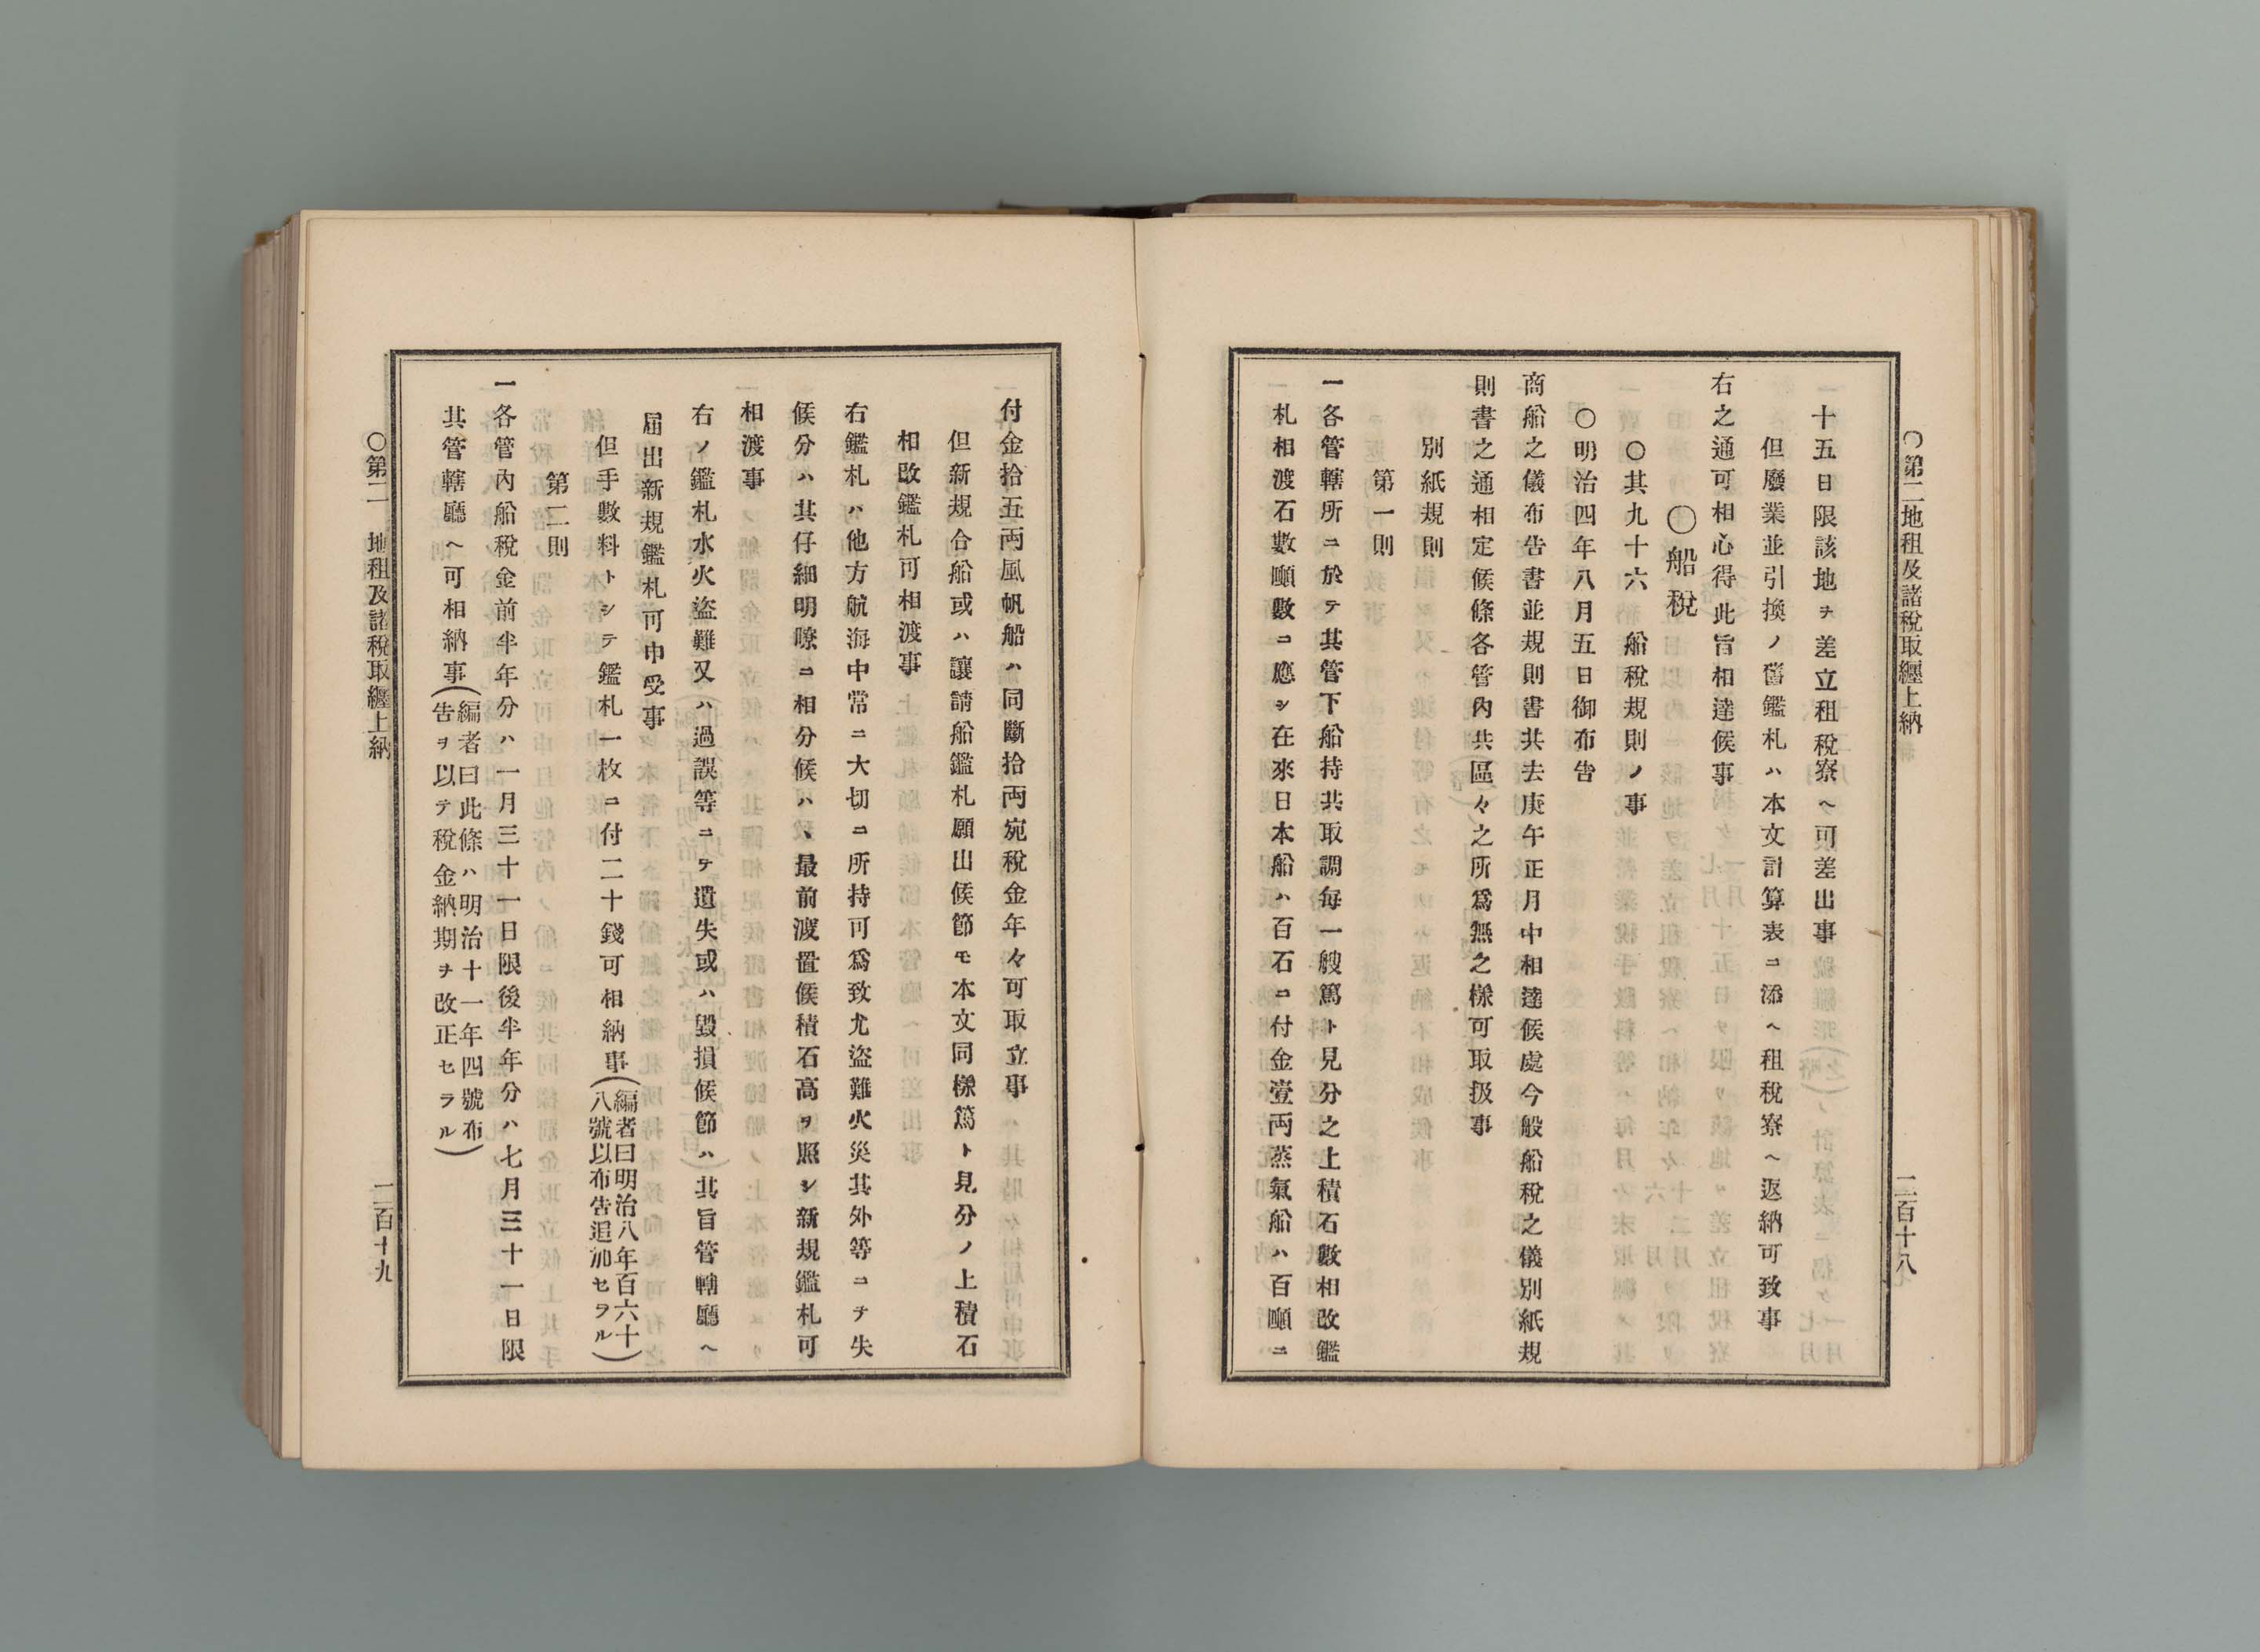 ○第二地租及諸税取纒上納
二百十八
十五日限該地ヲ差立租税寮ヘ可差出事
但廢業並引換ノ舊鑑札ハ本文計算表ニ添ヘ租税寮ヘ返納可致事
右之通可相心得此旨相達候事
○船税
○其九十六 船税規則ノ事
○明治四年八月五日御布告
商船之儀布告書並規則書共去庚午正月中相達候處今般船税之儀別紙規
則書之通相定候條各管内共區々之所爲無之樣可取扱事
別紙規則
第一則
一各管轄所ニ於テ其管下船持共取調毎一艘篤ト見分之上積石數相改鑑
札相渡石數噸數ニ應シ在來日本船ハ百石ニ付金壹両蒸氣船ハ百噸ニ
付金拾五両風帆船ハ同斷拾両宛税金年々可取立事
但新規合船或ハ讓請船鑑札願出候節モ本文同樣篤ト見分ノ上積石
相改鑑札可相渡事
右鑑札ハ他方航海中常ニ大切ニ所持可爲致尤盜難火災其外等ニテ失
候分ハ其仔細明瞭ニ相分候ハヽ最前渡置候積石高ヲ照シ新規鑑札可
相渡事
右ノ鑑札水火盜難又ハ過誤等ニテ遺失或ハ毀損候節ハ其旨管轄廳ヘ
屆出新規鑑札可申受事
但手數料トシテ鑑札一枚ニ付二十錢可相納事(編者曰明治八年百六十
八號以布告追加セラル)
第二則
一各管內船税金前半年分ハ一月三十一日限後半年分ハ七月三十一日限
其管轄廳ヘ可相納事(編者曰此條ハ明治十一年四號布
告ヲ以テ税金納期ヲ改正セラル)
○第二 地租及諸税取纒上納
二百十九